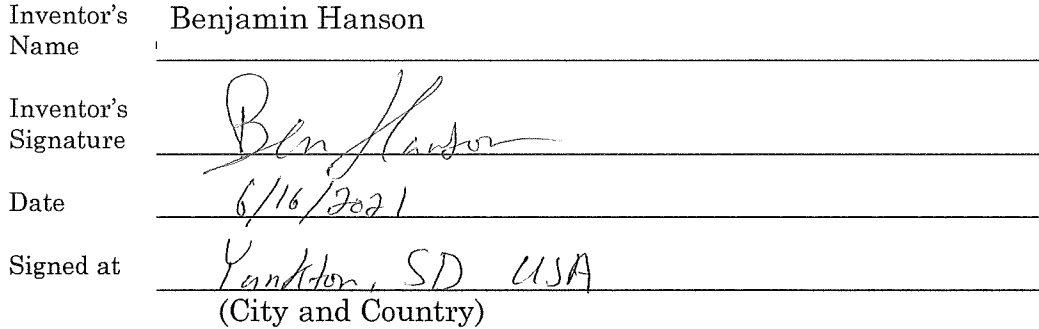 Inventor's Name Benjamin Hanson
Inventor's Signature Ben Hanson
Date 6/16/2021
Signed at Yankton, SD USA
(City and Country)